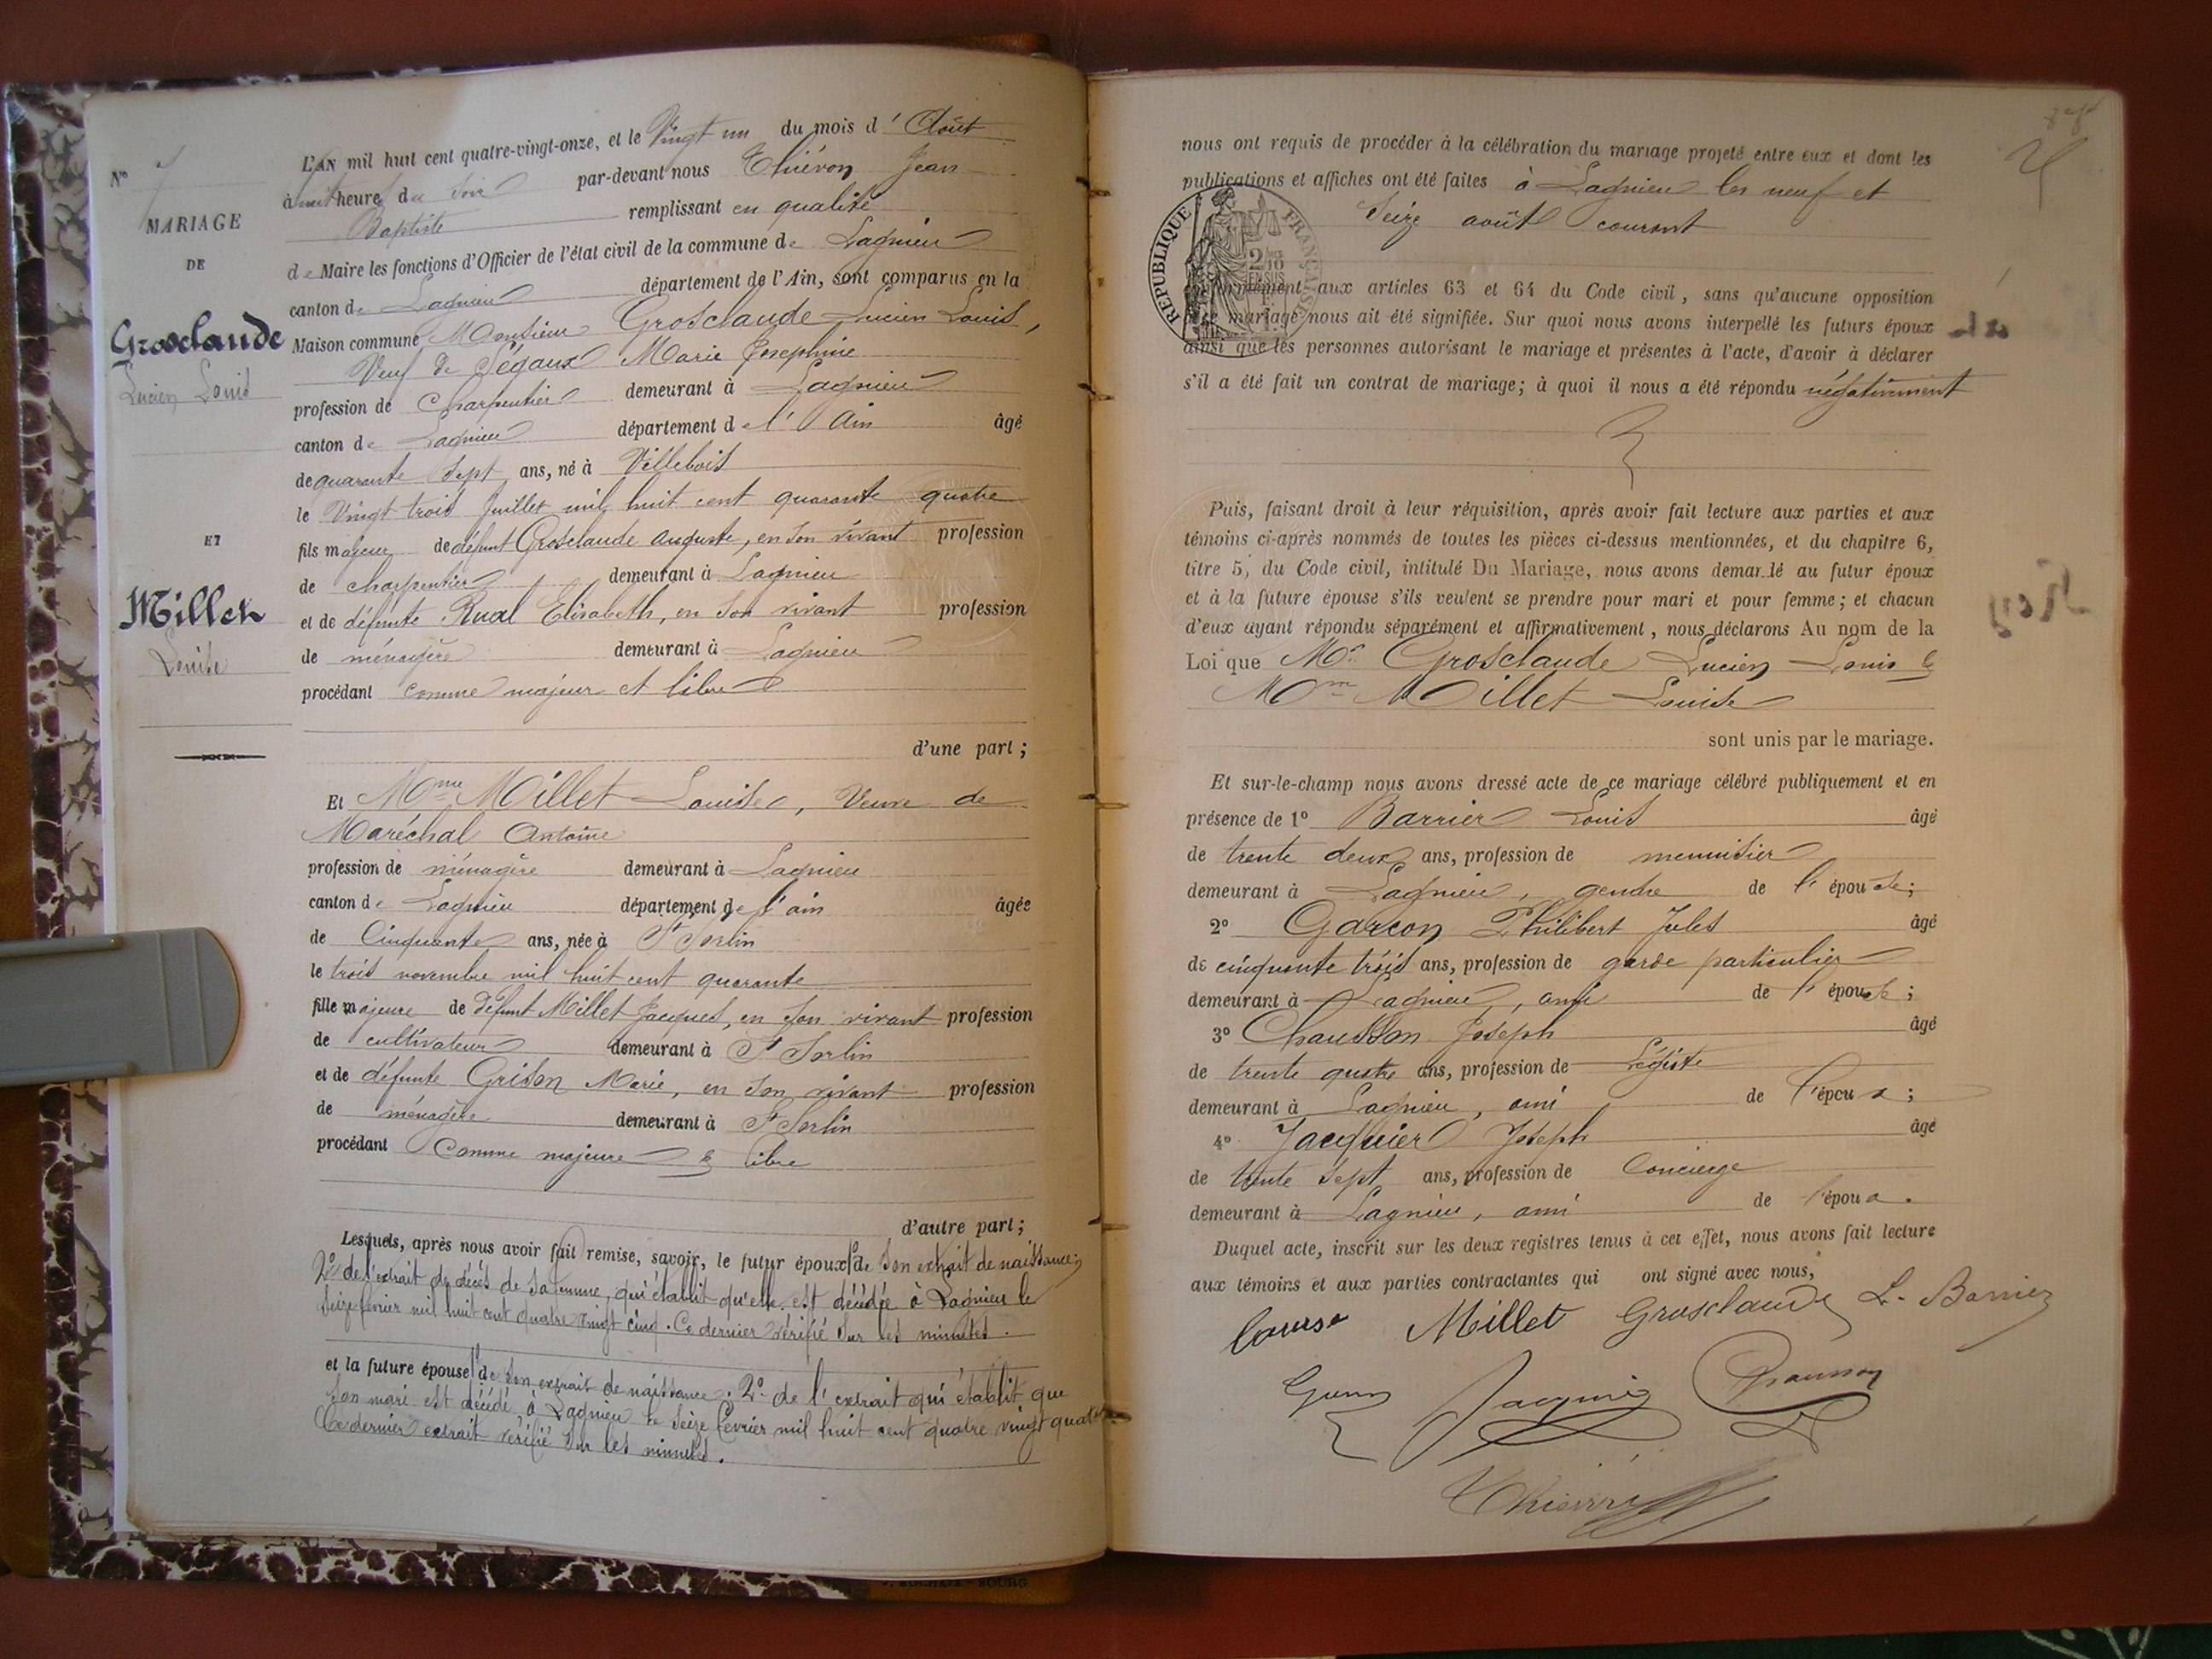 N° 7
MARIAGE
DE
Grosclaude
Lucien Louis
ET
Millet
Louise
L'AN mil huit cent quatre-vingt-onze, et le Vingt un du mois d' Août
à huit heure s du soir par-devant nous Thiévon Jean
Baptiste remplissant en qualité
de Maire les fonctions d'Officier de l'état civil de la commune de Lagnieu
canton de Lagnieu département de l'Ain, sont comparus en la
Maison commune Monsieur Grosclaude Lucien Louis,
Veuf de Ségaux Marie Josephine
profession de Charpentier demeurant à Lagnieu
canton de Lagnieu département de l' Ain âgé
de quarante sept ans, né à Villebois
le Vingt trois Juillet mil huit cent quarante quatre
fils majeur de défunt Grosclaude Auguste, en son vivant profession
de charpentier demeurant à Lagnieu
et de défunte Ruat Elisabeth, en son vivant profession
de ménagère demeurant à Lagnieu
procédant comme majeur et libre
d'une part;
Et Mme Millet Louise, Veuve de
Maréchal Antoine
profession de ménagère demeurant à Lagnieu
canton de Lagnieu département de l'ain âgée
de Cinquante ans, née à St Sorlin
le trois novembre mil huit cent quarante
fille majeure de défunt Millet Jacques, en son vivant profession
de cultivateur demeurant à St Sorlin
et de défunte Grison Marie, en son vivant profession
de ménagère demeurant à St Sorlin
procédant Comme majeure & libre
d'autre part;
Lesquels, après nous avoir fait remise, savoir, le futur époux 1° de son extrait de naissance;
2° de l'extrait de décès de sa femme, qui établit qu'elle est décédée à Lagnieu le
seize février mil huit cent quatre vingt cinq. Ce dernier vérifié sur les minutes.
et la future épouse 1° de son extrait de naissance. 2° de l'extrait qui établit que
son mari est décédé à Lagnieu le seize février mil huit cent quatre vingt quatre
Ce dernier extrait vérifié sur les minutes.
nous ont requis de procéder à la célébration du mariage projeté entre eux et dont les
publications et affiches ont été faites à Lagnieu les neuf et
Seize août courant
REPUBLIQUE FRANÇAISE
2/10 EN SUS
aux articles 63 et 64 du Code civil, sans qu'aucune opposition
mariage nous ait été signifiée. Sur quoi nous avons interpellé les futurs époux
ainsi que les personnes autorisant le mariage et présentes à l'acte, d'avoir à déclarer
s'il a été fait un contrat de mariage; à quoi il nous a été répondu négativement
Puis, faisant droit à leur réquisition, après avoir fait lecture aux parties et aux
témoins ci-après nommés de toutes les pièces ci-dessus mentionnées, et du chapitre 6,
titre 5, du Code civil, intitulé Du Mariage, nous avons demandé au futur époux
et à la future épouse s'ils veulent se prendre pour mari et pour femme; et chacun
d'eux ayant répondu séparément et affirmativement, nous déclarons Au nom de la
Loi que Mr Grosclaude Lucien Louis &
Mme Millet Louise
sont unis par le mariage.
Et sur-le-champ nous avons dressé acte de ce mariage célébré publiquement et en
présence de 1° Barrier Louis âgé
de trente deux ans, profession de menuisier
demeurant à Lagnieu, gendre de l' épouse;
2° Garçon Philibert Jules âgé
de cinquante trois ans, profession de garde particulier
demeurant à Lagnieu, ami de l' épouse;
3° Chausson Joseph âgé
de trente quatre ans, profession de Légiste
demeurant à Lagnieu, ami de l'époux;
4° Jacquier Joseph âgé
de trente sept ans, profession de Concierge
demeurant à Lagnieu, ami de l'époux.
Duquel acte, inscrit sur les deux registres tenus à cet effet, nous avons fait lecture
aux témoins et aux parties contractantes qui ont signé avec nous,
Louise Millet Grosclaude L. Barrier
Jacquier Chausson